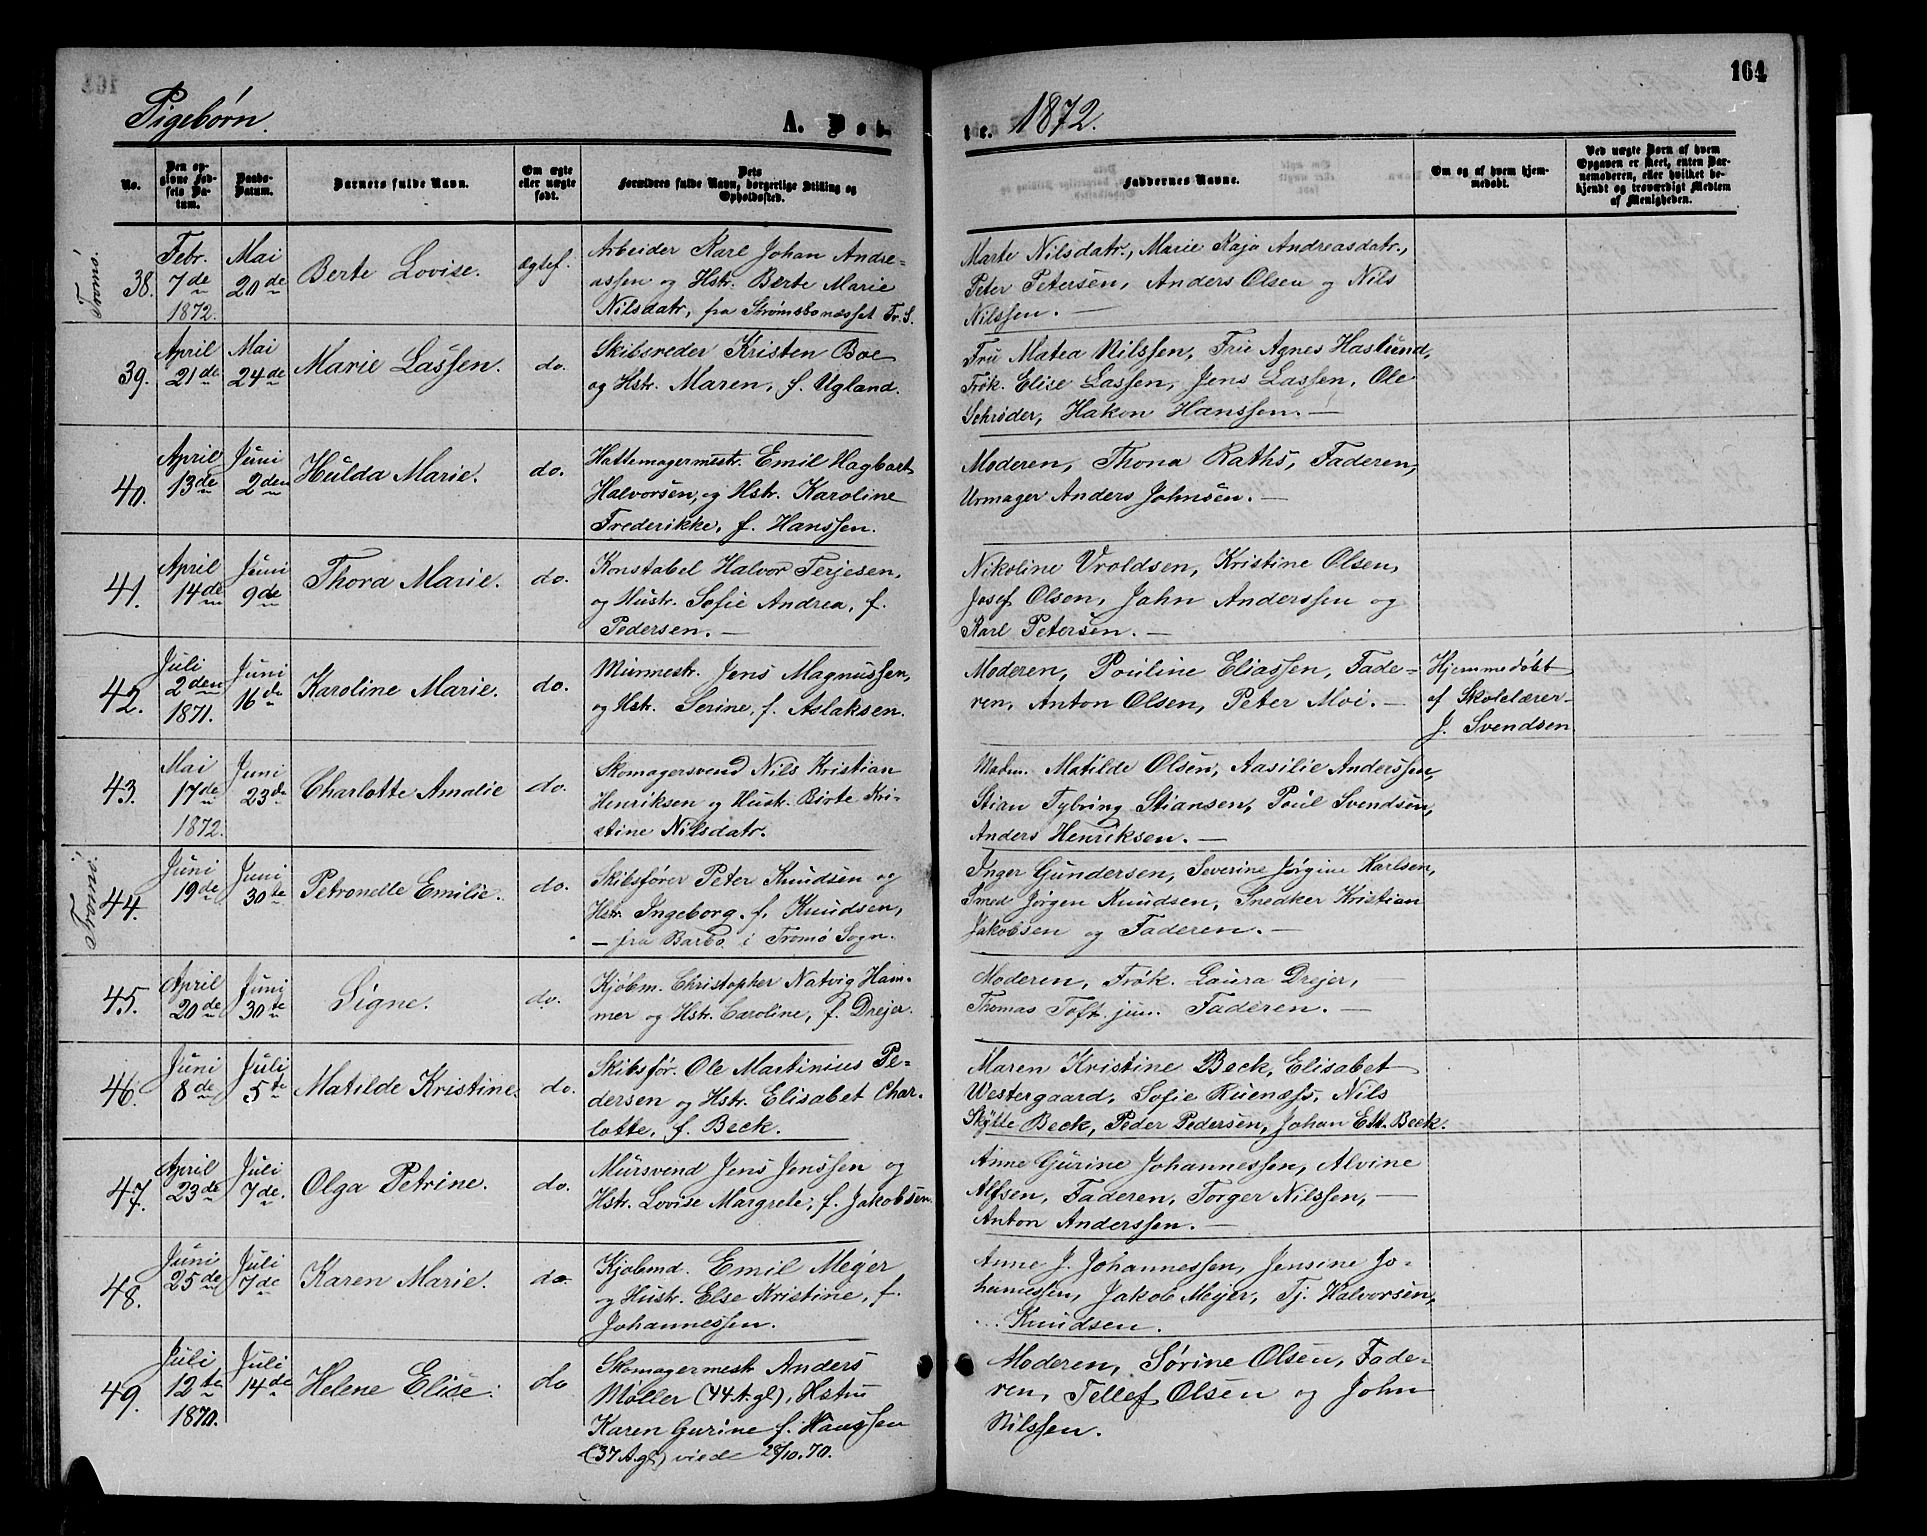 164
Pigebørn. A. Døb- te. 1872.
No.
Den opgivne Fødsels Datum.
Daabs-Datum.
Barnets fulde Navn.
Om ægte eller uægte født.
Dets Forældres fulde Navn, borgerlige Stilling og Opholdssted.
Faddernes Navne.
Om og af hvem hjemmedøbt.
Ved uægte Børn af hvem Opgaven er skeet, enten Barnemoderen, eller hvilket bekjendt og troværdigt Medlem af Menigheden.
Tromø.
38. Febr. 7de 1872. Mai 20de Berte Lovise. Ægtef.
Arbeider Karl Johan Andre-
assen og Hstr. Berte Marie
Nilsdatr, fra Strømsbonæsset Tr. S.
Marte Nilsdatr., Marie Kaja Andreasdatr.,
Peter Petersen, Anders Olsen og Nils
Nilssen. —
39. April 21de Mai 24de Marie Lassen. do.
Skibsreder Kristen Boe
og Hstr. Maren, f. Ugland.
Fru Matea Nilssen, Fru Agnes Haslund,
Frøk. Elise Lassen, Jens Lassen, Ole
Schrøder, Hakon Hanssen. —
40. April 13de Juni 2den Hulda Marie. do.
Hattemagermestr. Emil Hagbart
Halvorsen, og Hstr. Karoline
Frederikke, f. Hanssen.
Moderen, Thona Raths, Faderen,
Urmager Anders Johnsen. —
41. April 14de Juni 9de Thora Marie. do.
Konstabel Halvor Terjesen,
og Hustr. Sofie Andrea, f.
Pedersen. —
Nikoline Vroldsen, Kristine Olsen,
Josef Olsen, John Anderssen og
Karl Petersen. —
42. Juli 2den 1871. Juni 16de Karoline Marie. do.
Murmestr. Jens Magnussen,
og Hstr. Serine, f. Aslaksen.
Moderen, Pouline Eliassen, Fade-
ren, Anton Olsen, Peter Moi. —
Hjemmedøbt
af Skolelærer
J. Svendsen
43. Mai 17de 1872. Juni 23de Charlotte Amalie do.
Skomagersvend Nils Kristian
Henriksen og Hustr. Birte Kri-
stine Nilsdatr.
Madm. Matilde Olsen, Aasilie Anderssen,
Stian Tybring Stiansen, Poul Svendsen,
Anders Henriksen. —
Tromø.
44. Juni 19de Juni 30te Petronelle Emilie. do.
Skibsfører Peter Knudsen og
Hstr. Ingeborg, f. Knudsen,
— fra Barbo i Tromø Sogn.
Inger Gundersen, Severine Jørgine Karlsen,
Smed Jørgen Knudsen, Snedker Kristian
Jakobsen og Faderen. —
45. April 20de Juni 30te Signe. do.
Kjøbm. Christopher Natvig Ham-
mer og Hstr. Caroline, f. Drejer.
Moderen, Frøk. Laura Drejer,
Thomas Toft jun. Faderen. —
46. Juni 8de Juli 5te Matilde Kristine. do.
Skibsfør. Ole Martinius Pe-
dersen og Hstr. Elisabet Char-
lotte, f. Beck.
Maren Kristine Beck, Elisabet
Westergaard, Sofie Ruenæss, Nils
Skytte Beck, Peder Pedersen, Johan Beck.
47. April 23de Juli 7de. Olga Petrine. do.
Mursvend Jens Jenssen og
Hstr. Lovise Margrete, f. Jakobsen.
Anne Gurine Johannessen, Alvine
Alfsen, Faderen, Torger Nilssen, —
Anton Anderssen. —
48. Juni 25de Juli 7de Karen Marie. do.
Kjøbmd. Emil Mejer
og Hustr. Else Kristine, f.
Johannessen.
Anne J. Johannessen, Jensine Jo-
hannessen, Jakob Mejer, Tj. Halvorsen,
... Knudsen.
49. Juli 12te 1870. Juli 14de Helene Elise. do
Skomagermest Anders
Møller (44 A. gl), Hstru
Karen Gurine f. Hanssen
(37 A. gl.) viede 28/10.70.
Moderen, Sørine Olsen, Fade-
ren, Tellef Olsen og John
Nilssen.